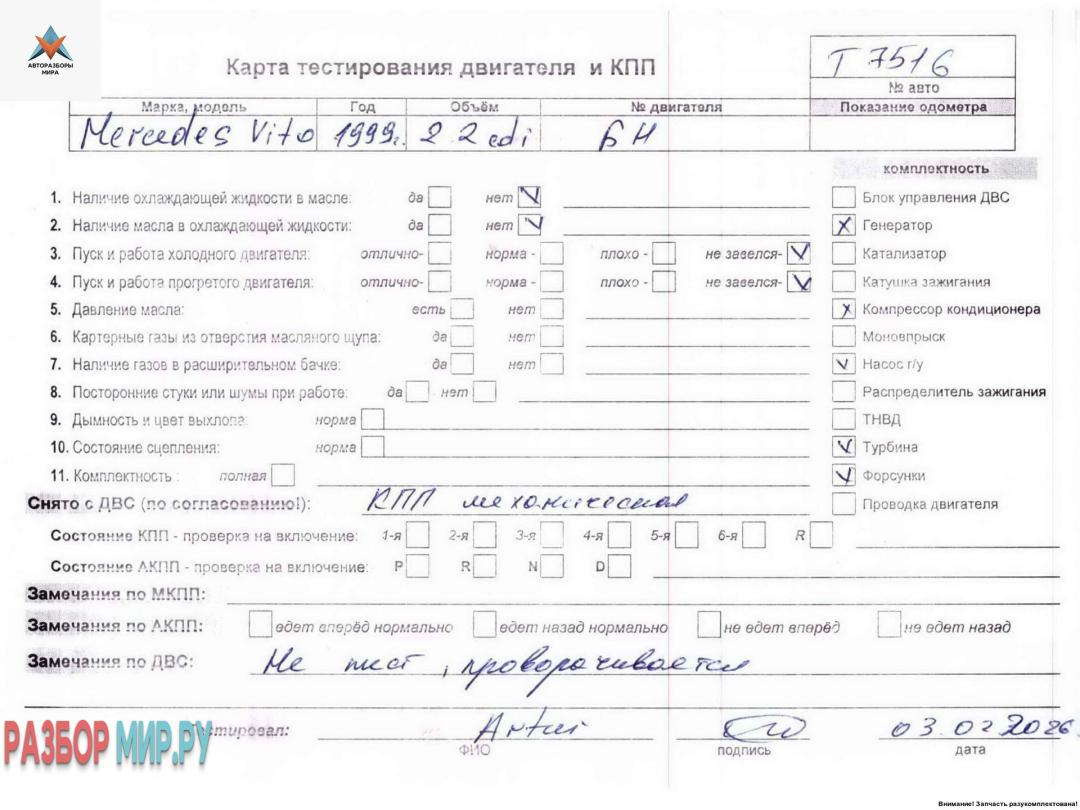 АВТОРАЗБОРЫ
МИРА
Карта тестирования двигателя и КПП
Т 7516
№ авто
Марка, модель Год Объём № двигателя Показание одометра
Mercedes Vito 1999г. 2.2 cdi БН
комплектность
1. Наличие охлаждающей жидкости в масле: да нет Блок управления ДВС
2. Наличие масла в охлаждающей жидкости: да нет Генератор
3. Пуск и работа холодного двигателя: отлично- норма - плохо - не завелся- Катализатор
4. Пуск и работа прогретого двигателя: отлично- норма - плохо - не завелся- Катушка зажигания
5. Давление масла: есть нет Компрессор кондиционера
6. Картерные газы из отверстия масляного щупа: да нет Моновпрыск
7. Наличие газов в расширительном бачке: да нет Насос г/у
8. Посторонние стуки или шумы при работе: да нет Распределитель зажигания
9. Дымность и цвет выхлопа: норма ТНВД
10. Состояние сцепления: норма Турбина
11. Комплектность : полная Форсунки
Снято с ДВС (по согласованию!): КПП механическая Проводка двигателя
Состояние КПП - проверка на включение: 1-я 2-я 3-я 4-я 5-я 6-я R
Состояние АКПП - проверка на включение: P R N D
Замечания по МКПП:
Замечания по АКПП: едет вперёд нормально едет назад нормально не едет вперёд не едет назад
Замечания по ДВС: Не пист, проворачивается
РАЗБОРМИР.РУ
Тестировал: 03.02.2026
ФИО подпись дата
Внимание! Запчасть разукомплектована!